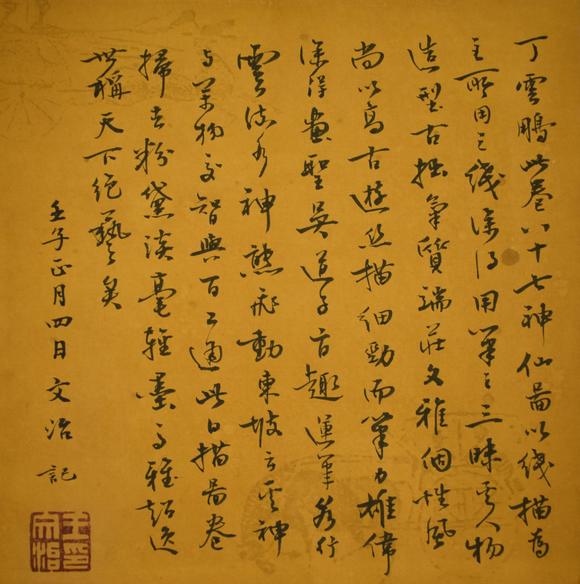 丁雲鵬此卷八十七神仙圖以线描為
主所用之线深得用筆之三昧其人物
造型古拙氣質端莊文雅個性風
尚以高古遊丝描细勁而筆力雄偉
深得畫聖吳道子古趣運筆若行
雲流水神態飛動東坡云其神
与萬物交智與百工通此白描圖卷
掃去粉黛淡毫輕墨高雅超逸
世稱天下绝藝矣
壬子正月四日文治記
王文治印